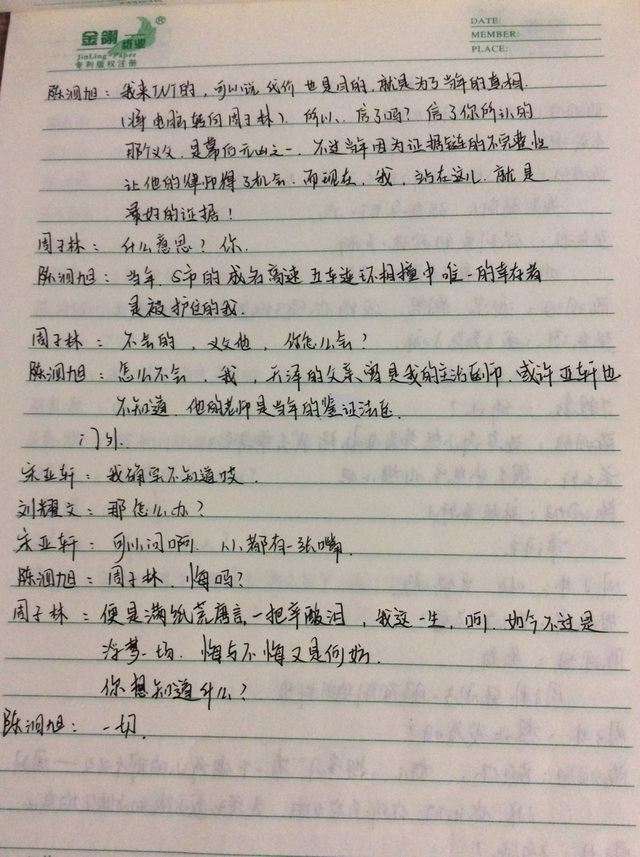 金翎纸业®
JinLing Paper
专利版权注册
DATE:
MEMBER:
PLACE:
陈泂旭：我来TNT的，可以说代价也是同的，就是为了当年的真相.
(将电脑转向周子林)．所以、信了吗？信了你所认的
那个义父，是幕后元凶之一．不过当年因为证据链的不完整性
让他的律师得了机会．而现在，我，站在这儿．就是
最好的证据！
周子林：什么意思？你.
陈泂旭：当年．S市的成名高速五车连环相撞中唯一的幸存者
是被护住的我.
周子林：不会的，义父他，你怎么会？
陈泂旭：怎么不会，我，天泽的父亲曾是我的主治医师．或许亚轩也
不知道．他的老师是当年的鉴证法医.
门外.
宋亚轩：我确实不知道吱.
刘耀文：那怎么办？
宋亚轩：可以问啊．人人都有一张嘴.
陈泂旭：周子林．悔吗？
周子林：便是满纸荒唐言，一把辛酸泪，我这一生，呵．如今不过是
浮梦一场．悔与不悔又是何妨.
你想知道什么？
陈泂旭：一切.